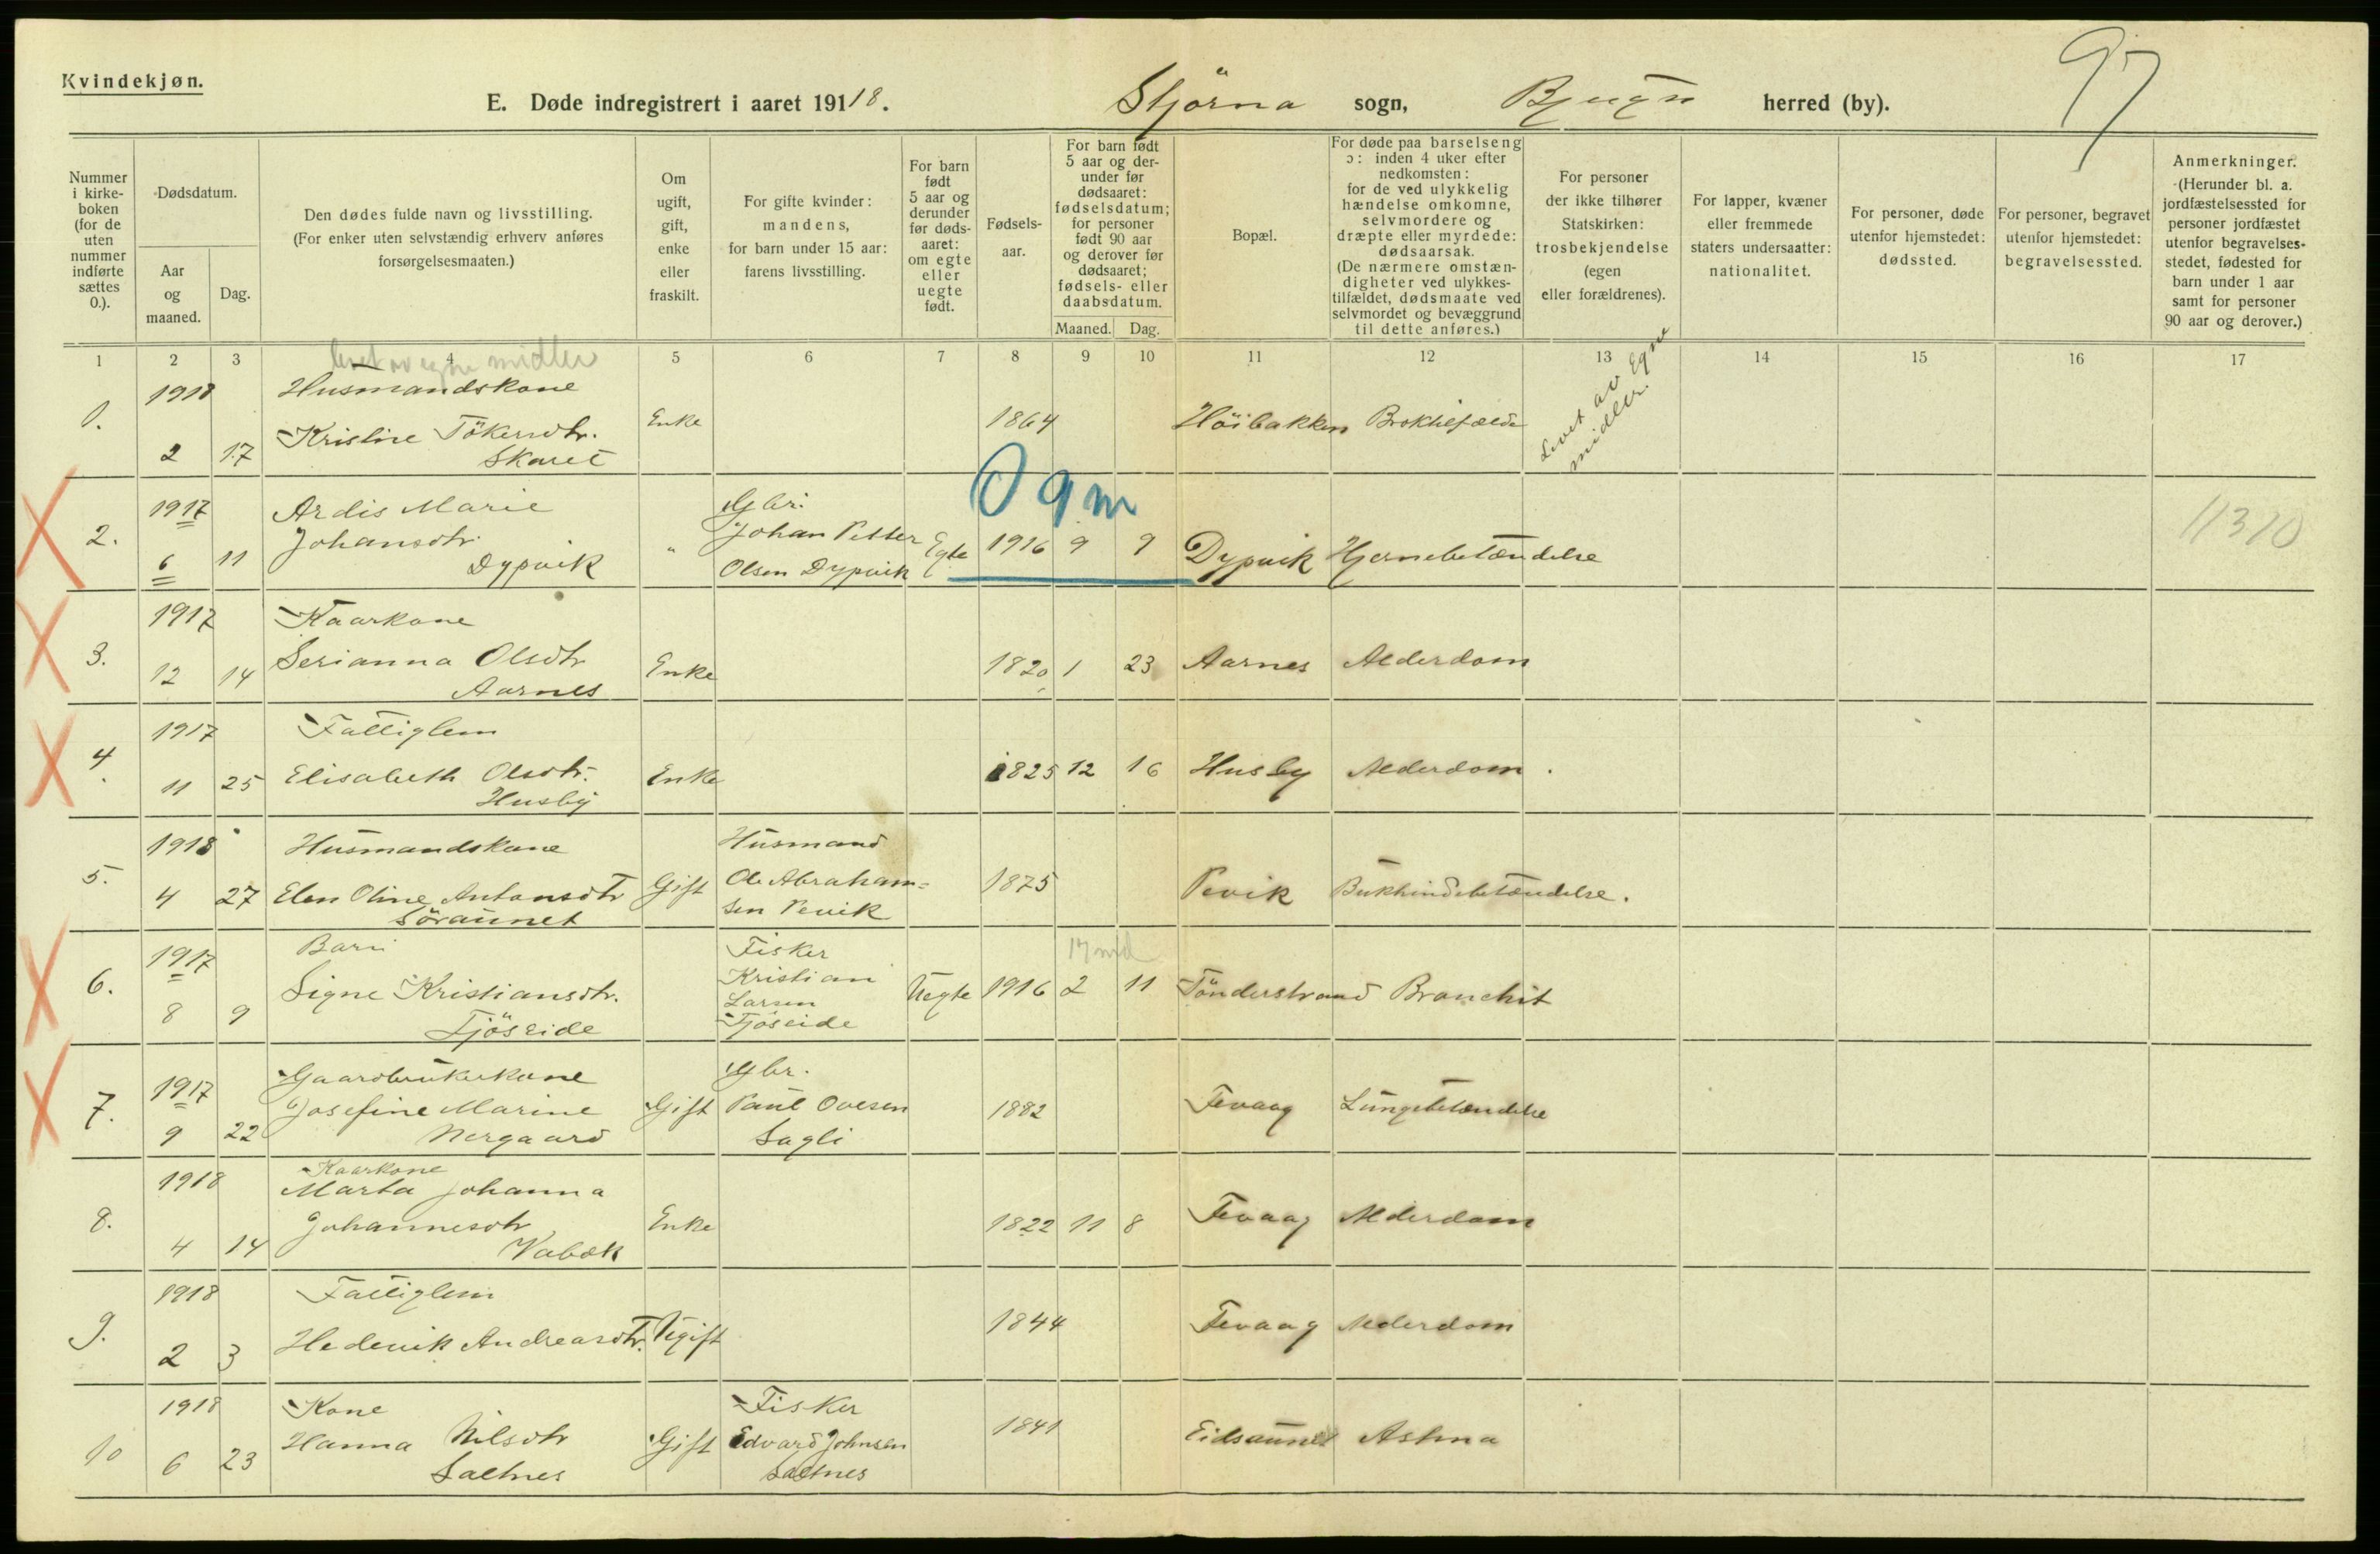 97
Kvindekjøn.
E. Døde indregistrert i aaret 19118. Stjörna sogn, Bjugn herred (by).
Nummer i kirkeboken (for de uten nummer indførte sættes 0.).
Dødsdatum.
Aar og maaned.
Dag.
Den dødes fulde navn og livsstilling.
(For enker uten selvstændig erhverv anføres
forsørgelsesmaaten.)
Om ugift, gift, enke eller fraskilt.
For gifte kvinder:
mandens,
for barn under 15 aar:
farens livsstilling.
For barn født 5 aar og derunder før dødsaaret: om egte eller uegte født.
Fødselsaar.
For barn født
5 aar og der-
under før
dødsaaret:
fødselsdatum;
for personer
født 90 aar
og derover før
dødsaaret;
fødsels- eller
daabsdatum.
Maaned. Dag.
Bopæl.
For døde paa barselseng
ɔ: inden 4 uker efter
nedkomsten:
for de ved ulykkelig
hændelse omkomne,
selvmordere og
dræpte eller myrdede:
dødsaarsak.
(De nærmere omstæn-
digheter ved ulykkes-
tilfældet, dødsmaate ved
selvmordet og bevæggrund
til dette anføres.)
For personer
der ikke tilhører
Statskirken:
trosbekjendelse
(egen
eller forældrenes).
For lapper, kvæner
eller fremmede
staters undersaatter:
nationalitet.
For personer, døde
utenfor hjemstedet:
dødssted.
For personer, begravet
utenfor hjemstedet:
begravelsessted.
Anmerkninger.
(Herunder bl. a.
jordfæstelsessted for
personer jordfæstet
utenfor begravelses-
stedet, fødested for
barn under 1 aar
samt for personer
90 aar og derover.)
1 2 3 4 5 6 7 8 9 10 11 12 13 14 15 16 17
levet av egne midler
1918 Husmandskone
1. Kristine Enke 1864 Höibakken Levet av Egne
2 17 Skaret midler.
0 9 m
1917 Ardis Marie Gbr.
2. Johansdtr. " Johan Petter Egte 1916 9 9 Dypvik Hjernebetændelse 11310
6 11 Dypvik Olsen Dypvik
1917 Kaarkone
3. Serianna Olsdtr Enke 1820 1 23 Aarnes Alderdom
12 14 Aarnes
1917 Fattiglem
4. 11 25 Elisabeth Olsdtr. Enke 1825 12 16 Husby Alderdom.
Husby
1918 Husmandskone Husmand
5. 4 27 Elen Oline Antonsdtr Gift Ole Abraham= 1875 Pevik Bukhindebetændelse.
Söraunet sen Pevik
1917 Barn Fisker 17 md
6. Signe Kristiansdtr. Kristian Uegte 1916 2 11 Tönderstrand Bronchit
Larsen
8 9 Fjöseide Fjöseide
1917 Gaardbrukerkone Gbr.
7. Josefine Marine Gift Paul Ovesen 1882 Fevaag Lungebetændelse
9 22 Norgaard Sagli
Kaarkone
1918 Marta Johanna
8. Johannesdtr Enke 1822 11 8 Fevaag Alderdom
4 14
1918 Fattiglem
9. 2 3 Hedevik Andreasdtr. Ugift 1844 Fevaag Alderdom
1918 Kone Fisker
10 6 23 Hanna Nilsdtr Gift Edvard Johnsen 1841 Eidsaunet Astma
Saltnes Saltnes